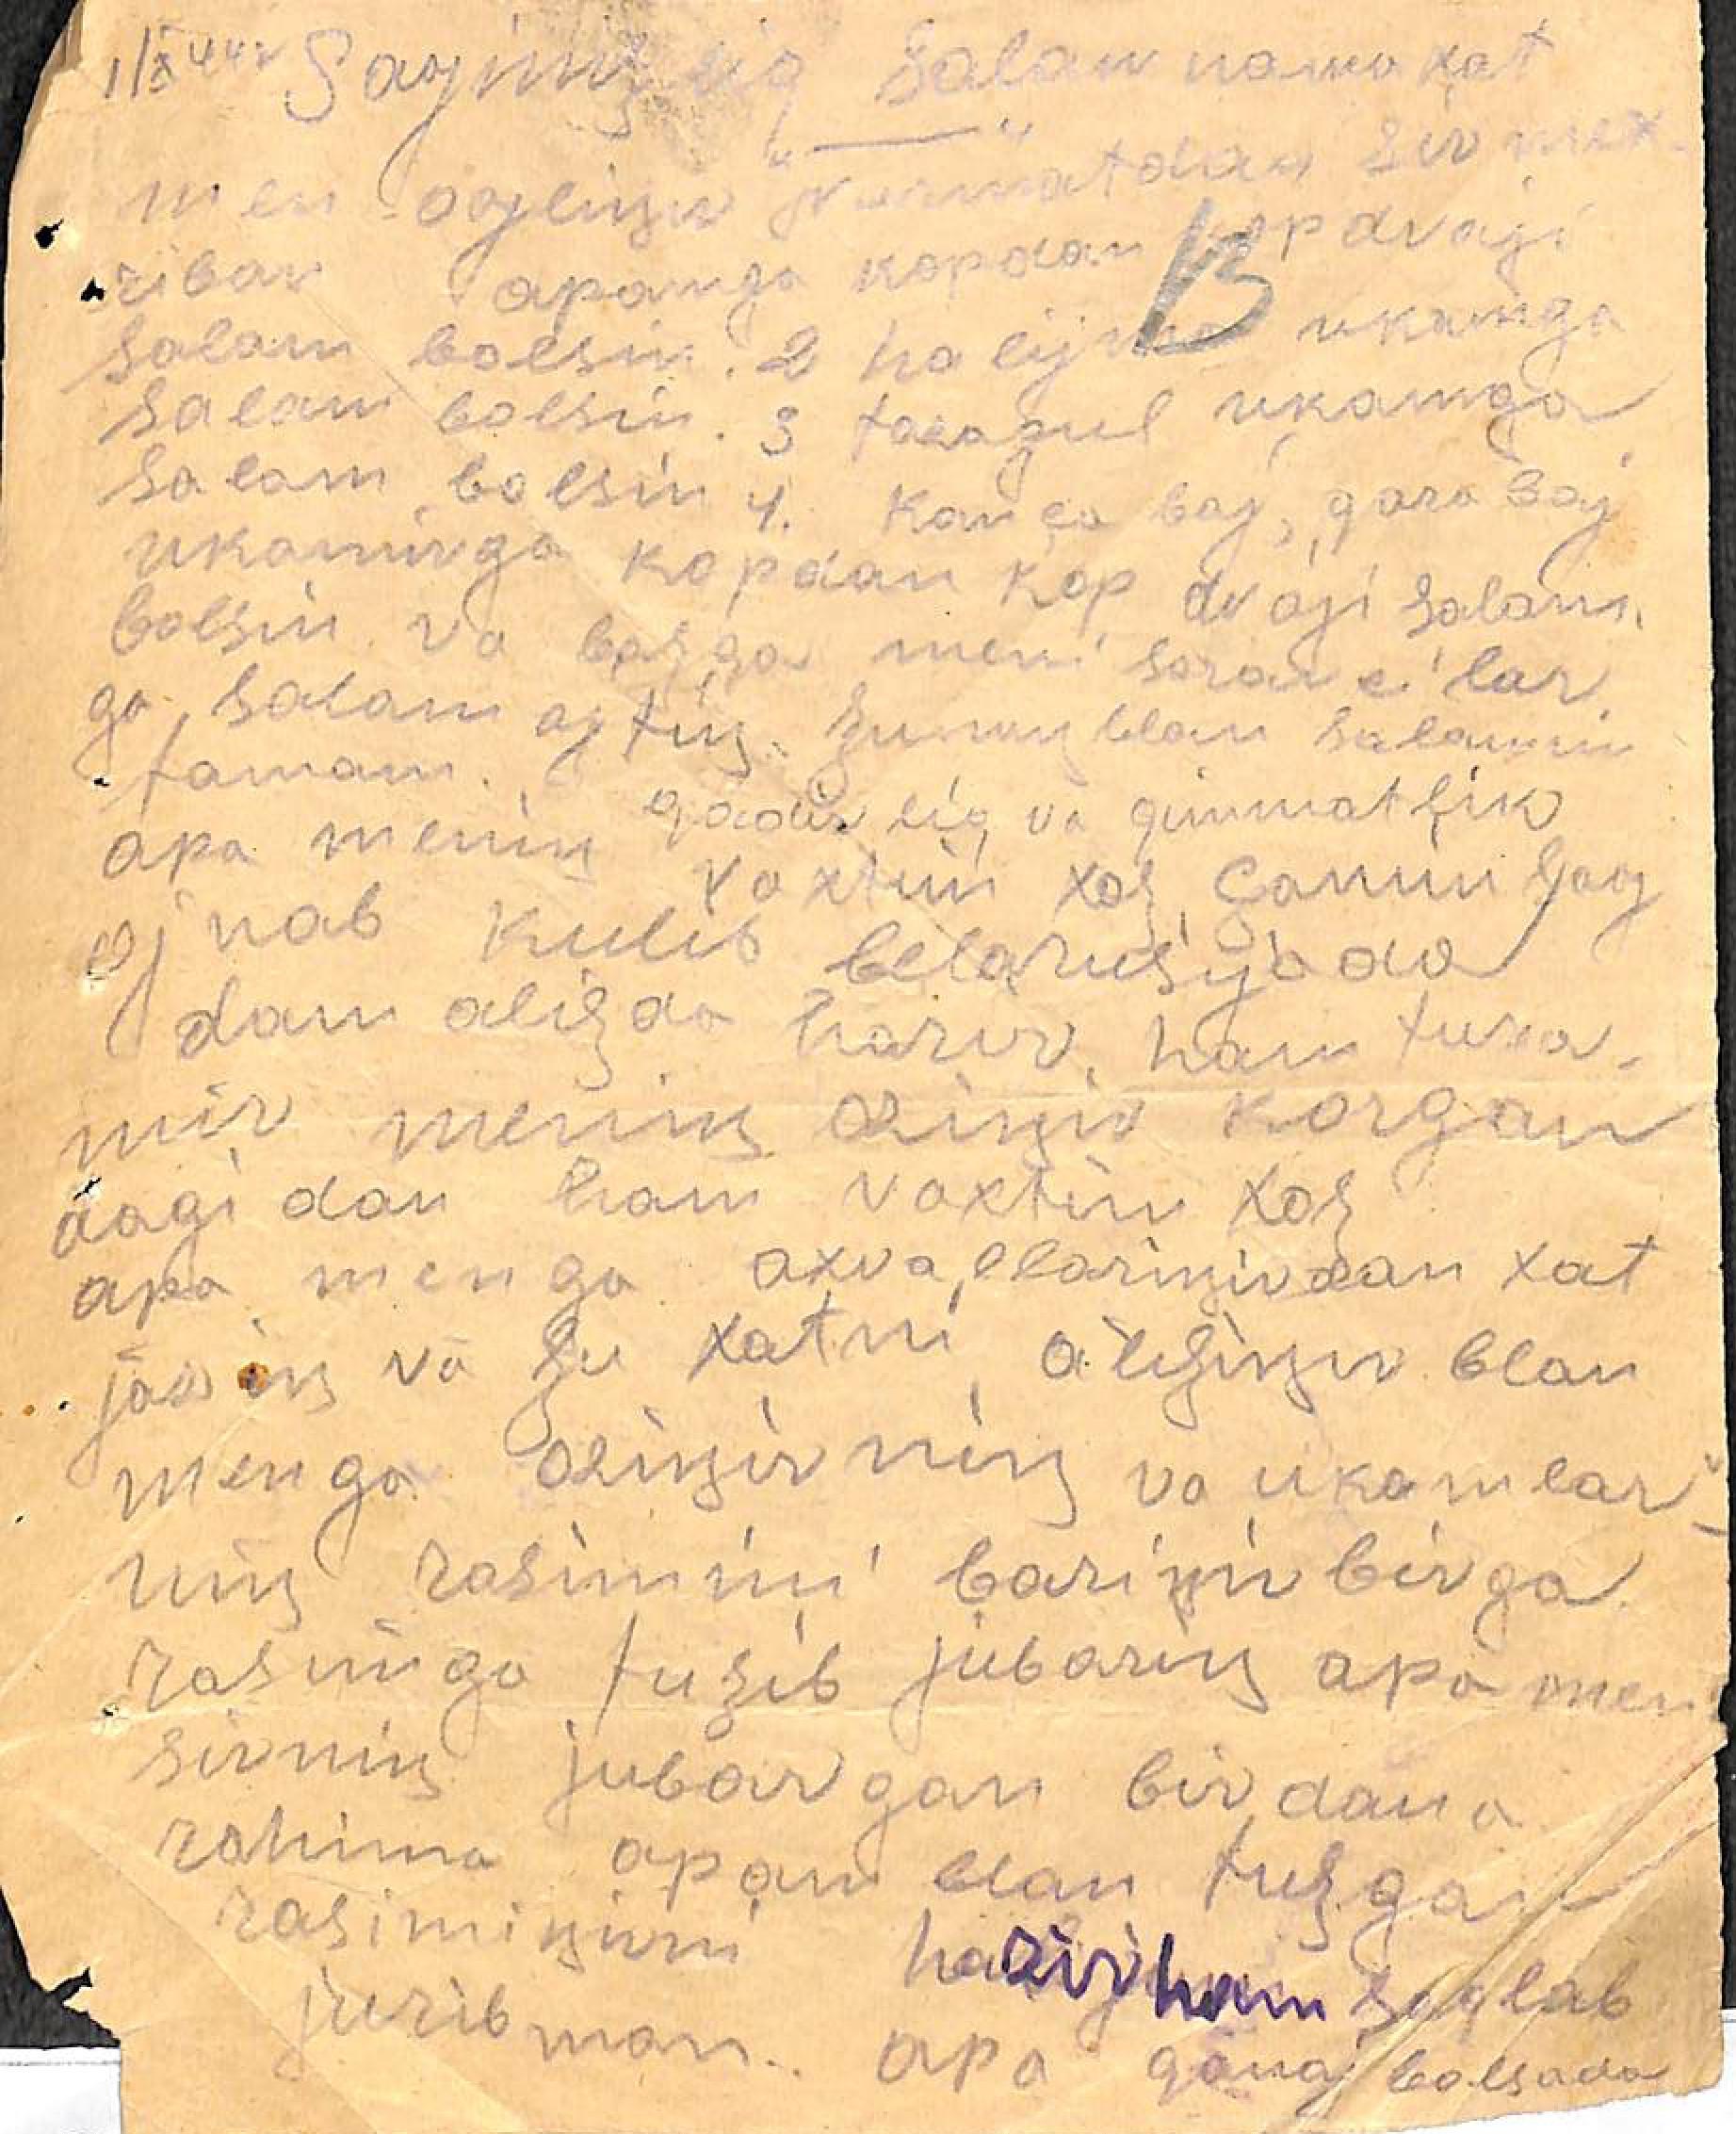 Sajinişliq Salam noma xat
men oğliŋiz Nurmatdan siz mex-
riban apamga kopdan kop duaji
salam bolsin. 2 halijma ukamga
salam bolsin. 3 tazagul ukamga
salam bolsin 4. Kança baj, qara baj
ukamnga kopdan kop duaji salam
bolsin va başqa meni soravçilar
ga salam ajtiŋ. Şunuŋ blan salamim
tamam.
apa meniŋ qadirliq va qimmatlik
vaxtim xoş çanim sag
ojnab kulib belarusijada
dam alişda hazir ham tura-
mir meniŋ oziŋiz korgan
dagidan ham vaxtim xoş
apa menga axvallariŋizdan xat
jaziŋ va şu xatni alişiŋiz blan
menga oziŋizniŋ va ukamlar-
niŋ rasimini bariŋiz birga
rasimga tuşib jubariŋ apa men
sizniŋ jubargan bir dana
rahima apam blan tuşgan
rasimiŋizni hazir ham saqlab
juribman. apa qanaj bolsada